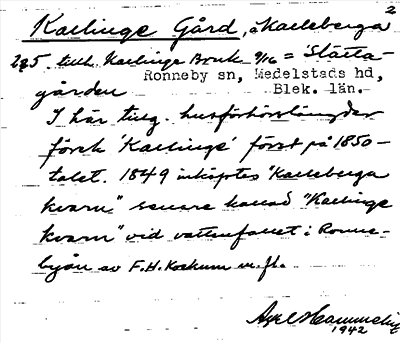 2
Kallinge Gård, å Kalleberga
2 5. tillh. Kallinge Bruk 9/16 = 'Slätta-
Ronneby sn, Medelstads hd,
gården
Blek. län.
I här tillg. husförhörslängder
förek 'Kallinge' först på 1850-
talet. 1849 inköptes "Kalleberga
kvarn", senare kallad "Kallinge
kvarn" vid vattenfallet i Ronne-
byån av F.H. Kockum m.fl.
Axel
1942